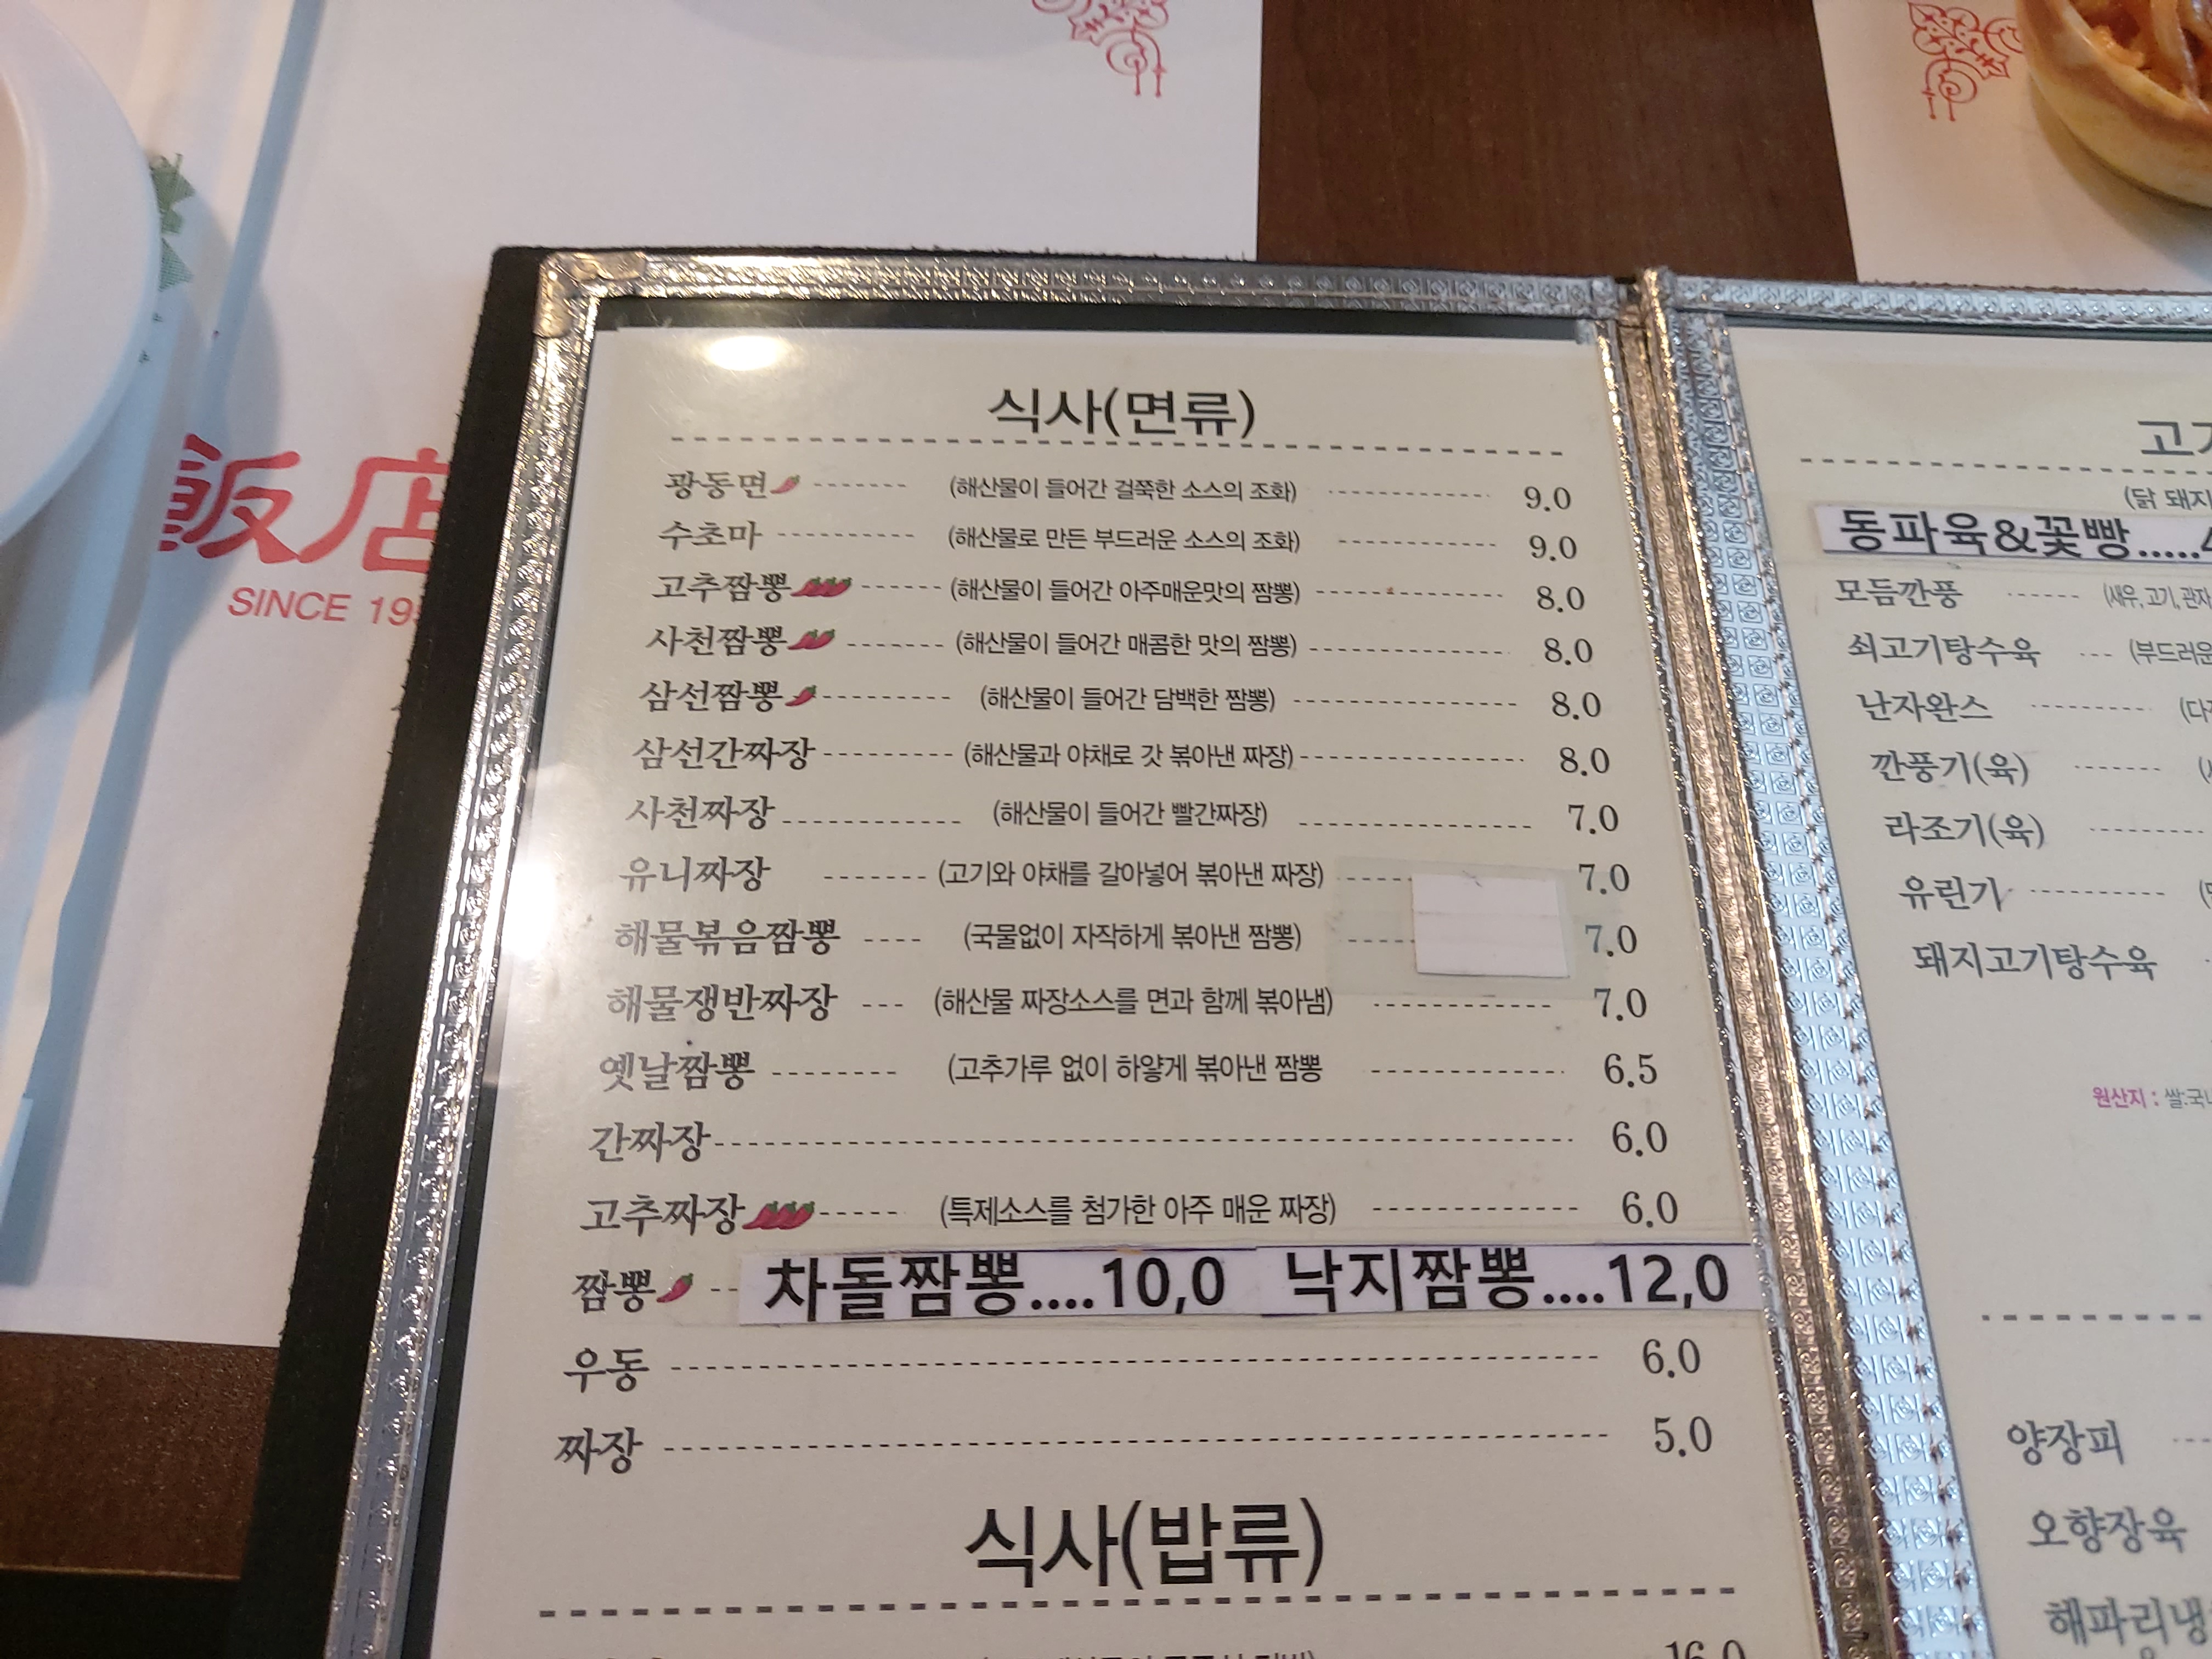 飯店
SINCE 195
식사(면류)
광동면 (해산물이 들어간 걸쭉한 소스의 조화) 9.0
수초마 (해산물로 만든 부드러운 소스의 조화) 9.0
고추짬뽕 (해산물이 들어간 아주매운맛의 짬뽕) 8.0
사천짬뽕 (해산물이 들어간 매콤한 맛의 짬뽕) 8.0
삼선짬뽕 (해산물이 들어간 담백한 짬뽕) 8.0
삼선간짜장 (해산물과 야채로 갓 볶아낸 짜장) 8.0
사천짜장 (해산물이 들어간 빨간짜장) 7.0
유니짜장 (고기와 야채를 갈아넣어 볶아낸 짜장) 7.0
해물볶음짬뽕 (국물없이 자작하게 볶아낸 짬뽕) 7.0
해물쟁반짜장 (해산물 짜장소스를 면과 함께 볶아냄) 7.0
옛날짬뽕 (고추가루 없이 하얗게 볶아낸 짬뽕 6.5
간짜장 6.0
고추짜장 (특제소스를 첨가한 아주 매운 짜장) 6.0
짬뽕 차돌짬뽕....10,0 낙지짬뽕....12,0
우동 6.0
짜장 5.0
식사(밥류)
16.0
(닭 돼지
동파육&꽃빵.....4
모듬깐풍 (새우,고기,관자
쇠고기탕수육 (부드러운
난자완스 (다
깐풍기(육)
라조기(육)
유린기
돼지고기탕수육
원산지 : 쌀:국내
양장피
오향장육
해파리냉